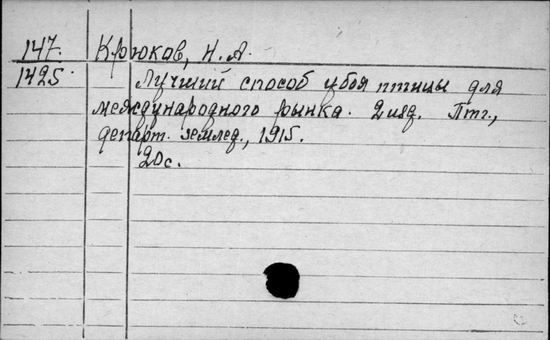 147. Крюков, Н. А.
1425. Лучший способ убоя птицы для
международного рынка. 2 изд. Птг.,
департ. землед., 1915.
20с.